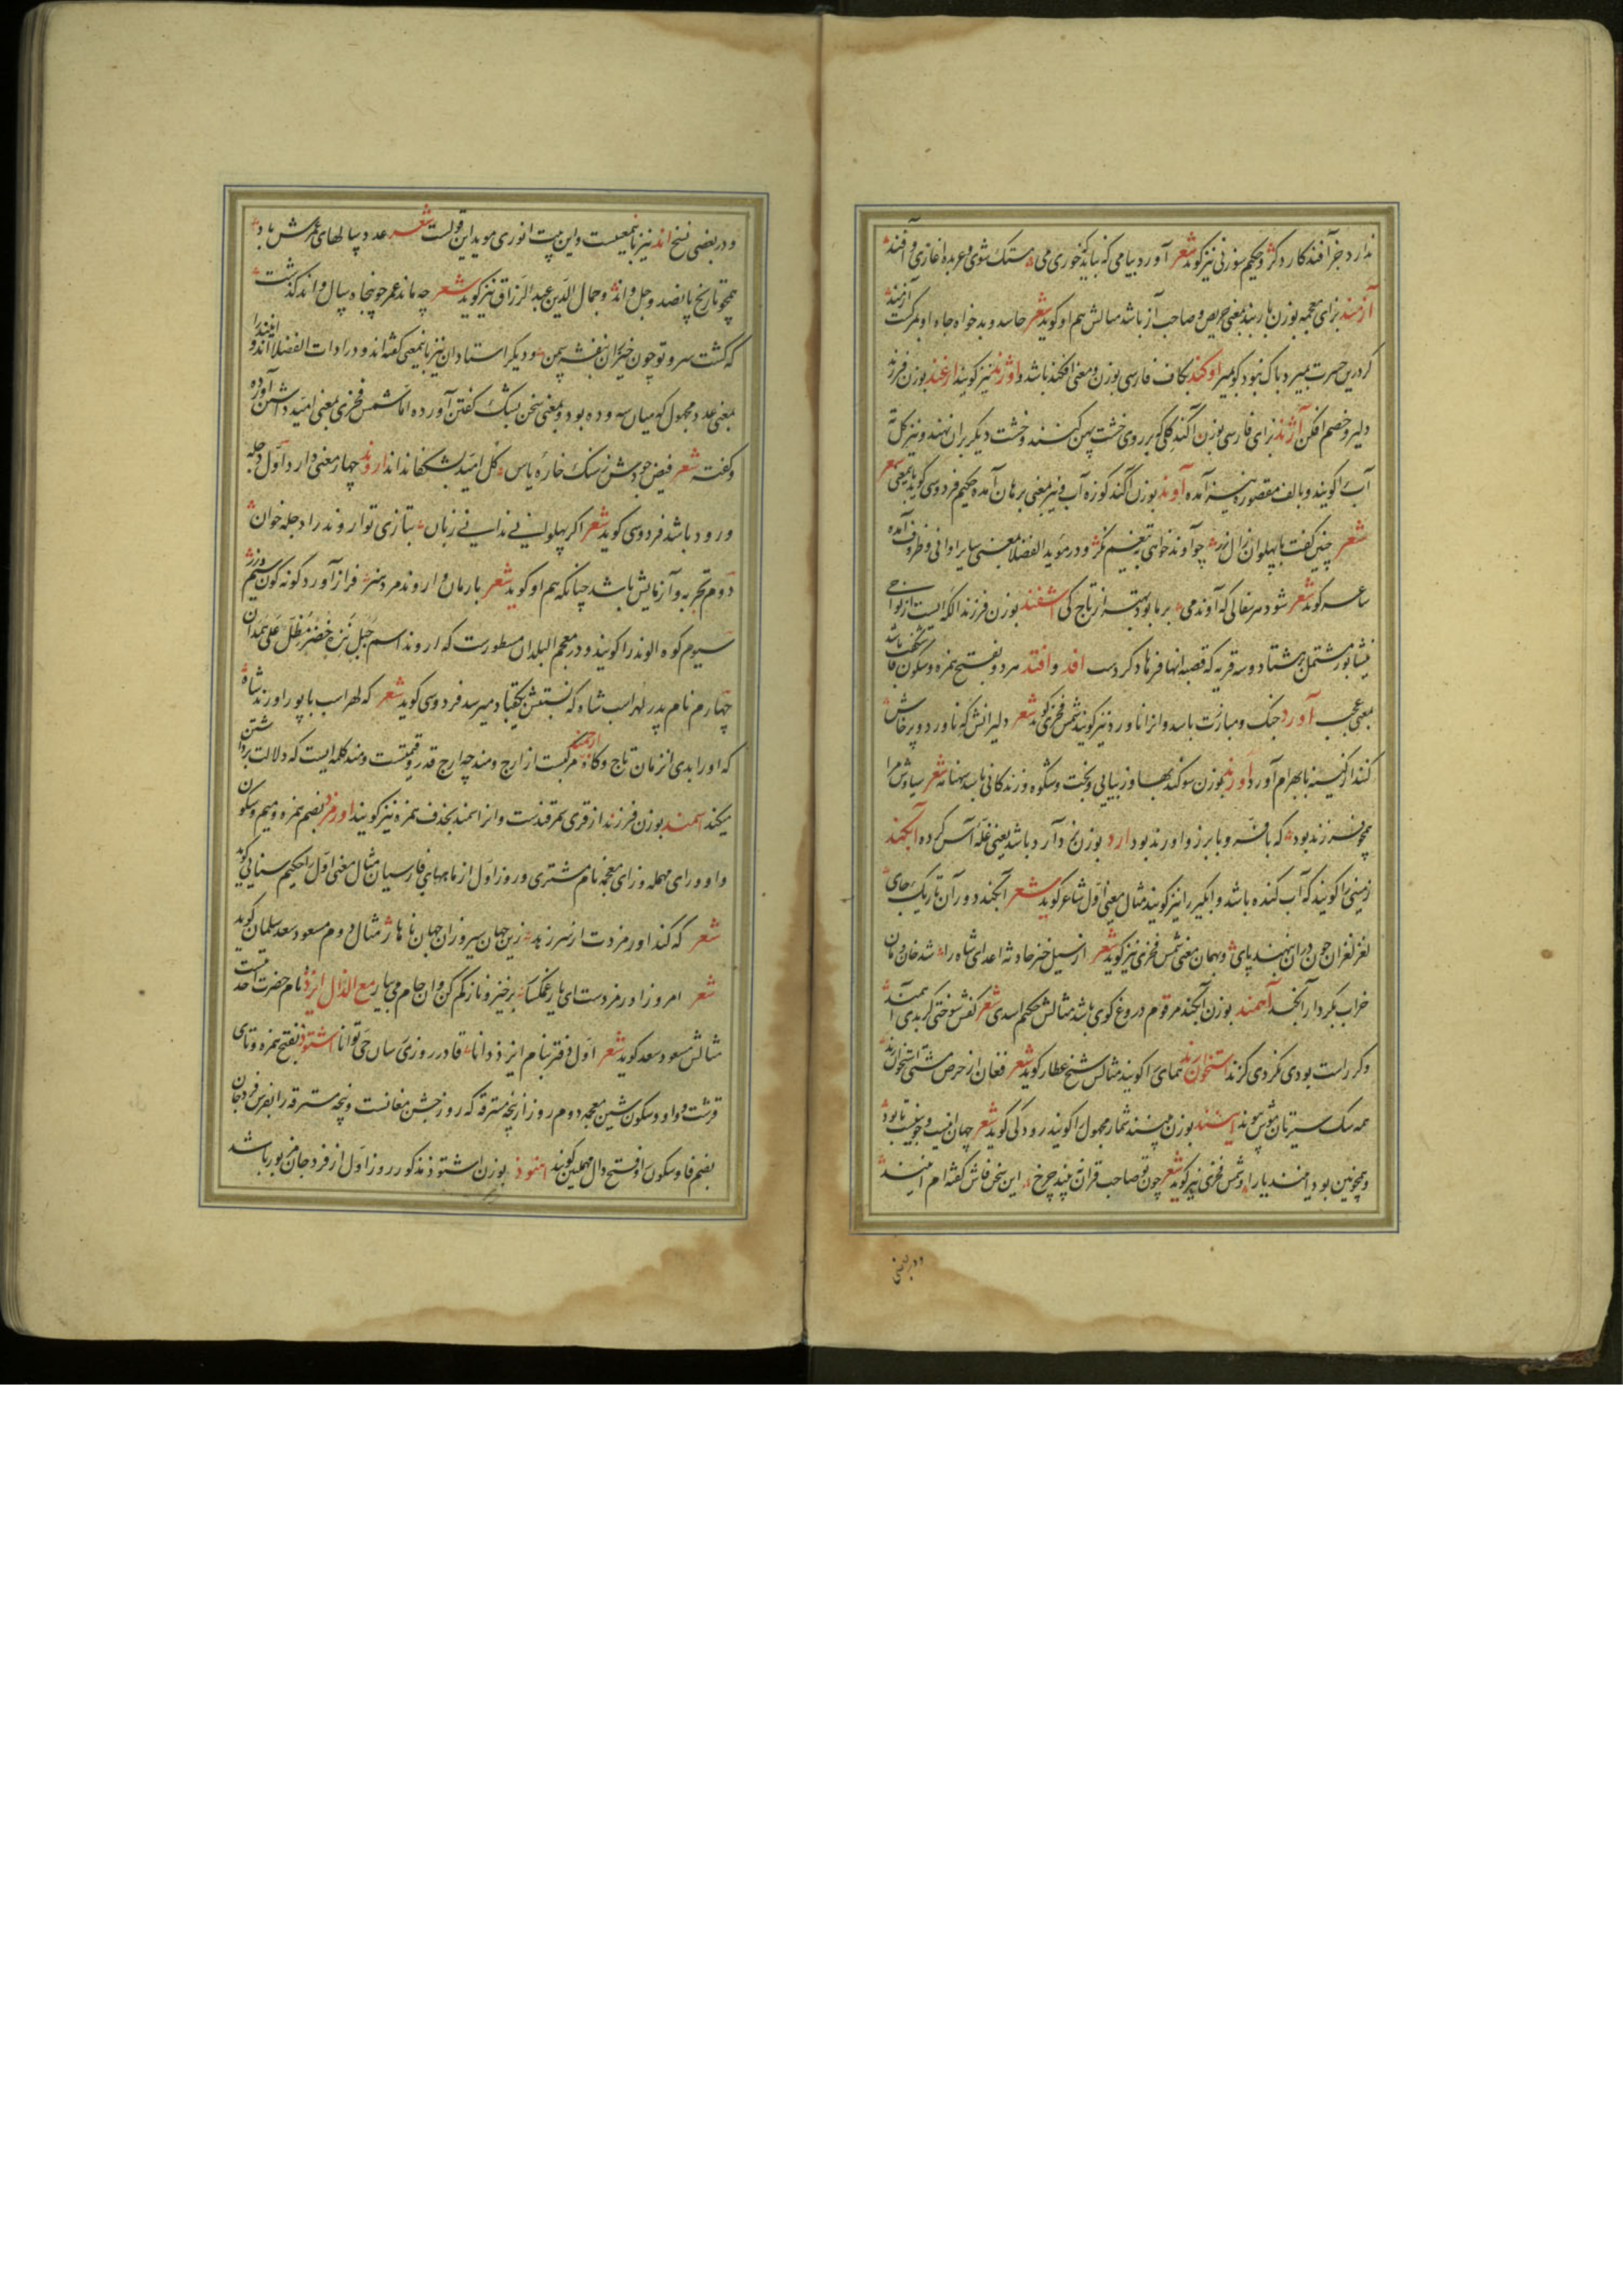 ندارد جز آفند کار دگر و حکیم سوزنی نیز گوید شعر آورد پیامی که نباید که خوری می مستک شوی و عربده آغازی و آفند
آزمند بزای معجمه بوزن پاربند بمعنی حریص و صاحب آز باشد مثالش هم او گوید شعر حاسد و بدخواه جاه او بمرگست آزمند
گر درین حسرت بمیرد باک نبود گو بمیر اوکند بکاف فارسی بوزن و معنی افکند باشد و اوژند نیز گویند ارغند بوزن فرزند
دلیر و خصم افکن آژند بزای فارسی بوزن آگند گلی که بر روی خشت پهن کنند و خشت دیگر بران نهند و نیز گل ته
آب را گویند و بالف مقصوره نیز آمده آوند بوزن آگند کوزه آب و نیز بمعنی برهان آمده حکیم فردوسی گوید باینمعنی شعر
شعر چنین گفت با پهلوان زال زر چو آوند خواهی بتیغم نگر و در مؤید الفضلا بمعنی سایر اوانی و ظروف آمده
شاعر گوید شعر شود هر سفالی که آوند می بر ما بود بهتر از تاج کی اشفند بوزن فرزند الکه ایست از نواحی
نیشابور مشتمل بر هشتاد و سه قریه که قصبه آنها فرهادگردست افد و افند هر دو بفتح همزه و سکون فا شگفت باشد
بمعنی عجب آورد جنگ و مبارزت باشد و انرا ناورد نیز گویند شمس فخری گوید شعر دلیرانش که ناورد و پرخاش
کنند از کینه با بهرام آورد اورند بوزن سوگند بها و زیبایی و بخت و شکوه و زندگانی باشد بهنامه شعر سیاوش مرا
همچو فرزند بود که با فر و با برز و اورند بود ارد بوزن نرد آرد باشد یعنی غله آس کرده آبکند
زمینی را گویند که آب کنده باشد و آبگیر را نیز گویند مثال معنی اول شاعر گوید شعر آبکند دور آن تاریک جای
لغز لغزان چون دران بنهند پای و بهمان معنی شمس فخری نیز گوید شعر از سیل خیز حادثه اعدای شاه را شد خان و مان
خراب بکردار آبکند آخمند بوزن آبکند مرقوم دروغ گوی باشد مثالش حکیم اسدی شعر کفش سوختی گر بدی آخمند
وگر راست بودی نکردی گزند استخوان رند همای را گویند مثالش شیخ عطار گوید شعر فغان از حرص مشتی استخوان رند
همه سگ سیرتان مؤش پیوند ایشند بوزن مپسند شمار مجهول را گویند رودکی گوید شعر جهان اینست و چونین است تا بود
و همچونین بود ایمند یارا و شمس فخری نیز گوید شعر چون تو صاحب قران نه بیند چرخ این سخن فاش گفته ام ایمند
ودر بعضی
و در بعضی نسخ اند نیز باینمعنیست و این بیت انوری موید این قولست شعر عدد سالهای عمرش باد
همچو تاریخ پانصد و چل و اند و جمال الدین عبد الرزاق نیز گوید شعر چه ماند عمر چو پنجاه سال و اند گذشت
که گشت سرو تو چون خیزران بنفشه سمن و دیگر استادان نیز باینمعنی گفته اند و در ادات الفضلا اند و ایند را
بمعنی عدد مجهول که میان سه و ده بود و بمعنی سخن بشک گفتن آورده اما شمس فخری بمعنی امید داشتن آورده
و گفته شعر فیض جودش ز سنگ خاره یاس گل امید بشکفاند اند اروند چهار معنی دارد اول دجله
و رود باشد فردوسی گوید شعر اگر پهلوانی ندانی زبان بتازی تو اروند را دجله خوان
دوم تجربه و آزمایش باشد چنانکه هم او گوید شعر بارمان و اروند مرد هنر فراز آورد گونه گون سیم و زر
سیوم کوه الوند را گویند و در معجم البلدان مسطورست که اروند اسم جبل نزه خضر مطل علی همدان
چهارم نام پدر لهراسب شاه که نسبتش بکیقباد میرسد فردوسی گوید شعر که لهراسب با پور اورند شاه
که او را بدی انزمان تاج و گاه ارجمند مرکبست از ارج و مند چه ارج قدر و قیمتست و مند کلمه ایست که دلالت بر داشتن
میکند اسمند بوزن فرزند از قری سمرقندست و انرا سمند بحذف همزه نیز گویند اورمزد بضم همزه و میم و سکون
واو و رای مهمله و زای معجمه نام مشتری و روز اول از ماههای فارسیان مثال معنی اول را حکیم سنایی گوید
شعر که کند اورمزدت ار سر زید زین جهان سیر و زان جهان ناهار مثال دوم مسعود سعد سلمان گوید
شعر امروز اورمزدست ای یار غمگسار برخیز و ناز کم کن و ان جام می بیار مع الذال ایزد نام حضرت احدیتست
مثالش مسعود سعد گوید شعر اول دفتر بنام ایزد دانا قادر روزی رسان حی توانا اشتوذ بفتح همزه و تای
قرشت و واو و سکون شین معجمه دوم روز از پنجه مسترقه که روز جشن مغانست و پنجه مسترقه را بفرس فردجان
بضم فا و سکون را و فتح دال مهملین گویند اهنوذ بوزن اشتوذ مذکور روز اول از فردجان مزبور باشد